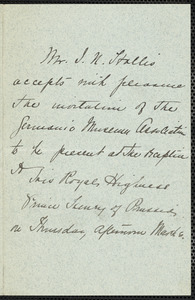 Mr. I. N. Hollis
accepts with pleasure
the invitation of the
Germanic Museum Association
to be present at the Reception
to His Royal Highness
Prince Henry of Prussia
on Thursday, afternoon March 6.